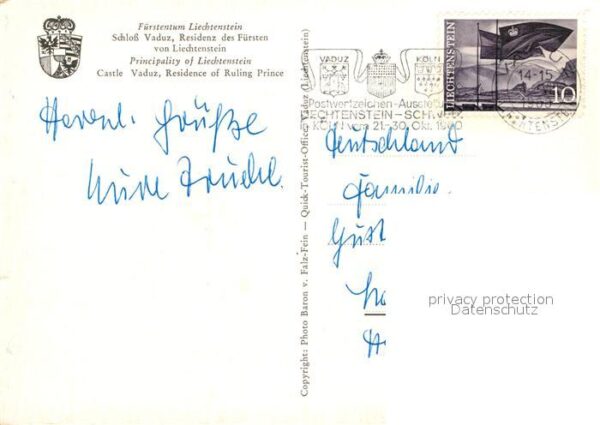 Fürstentum Liechtenstein
Schloß Vaduz, Residenz des Fürsten
von Liechtenstein
Principality of Liechtenstein
Castle Vaduz, Residence of Ruling Prince
Herzl. Grüße
Copyright: Photo Baron v. Falz-Fein — Quick-Tourist-Office, Vaduz (Liechtenstein)
LIECHTENSTEIN
10
VADUZ
KÖLN
14-15
Postwertzeichen-Ausstellu
LIECHTENSTEIN-SCH
KÖLN vom 21.-30. Okt. 1960
Deutschland
Familie
Gust
privacy protection
Datenschutz